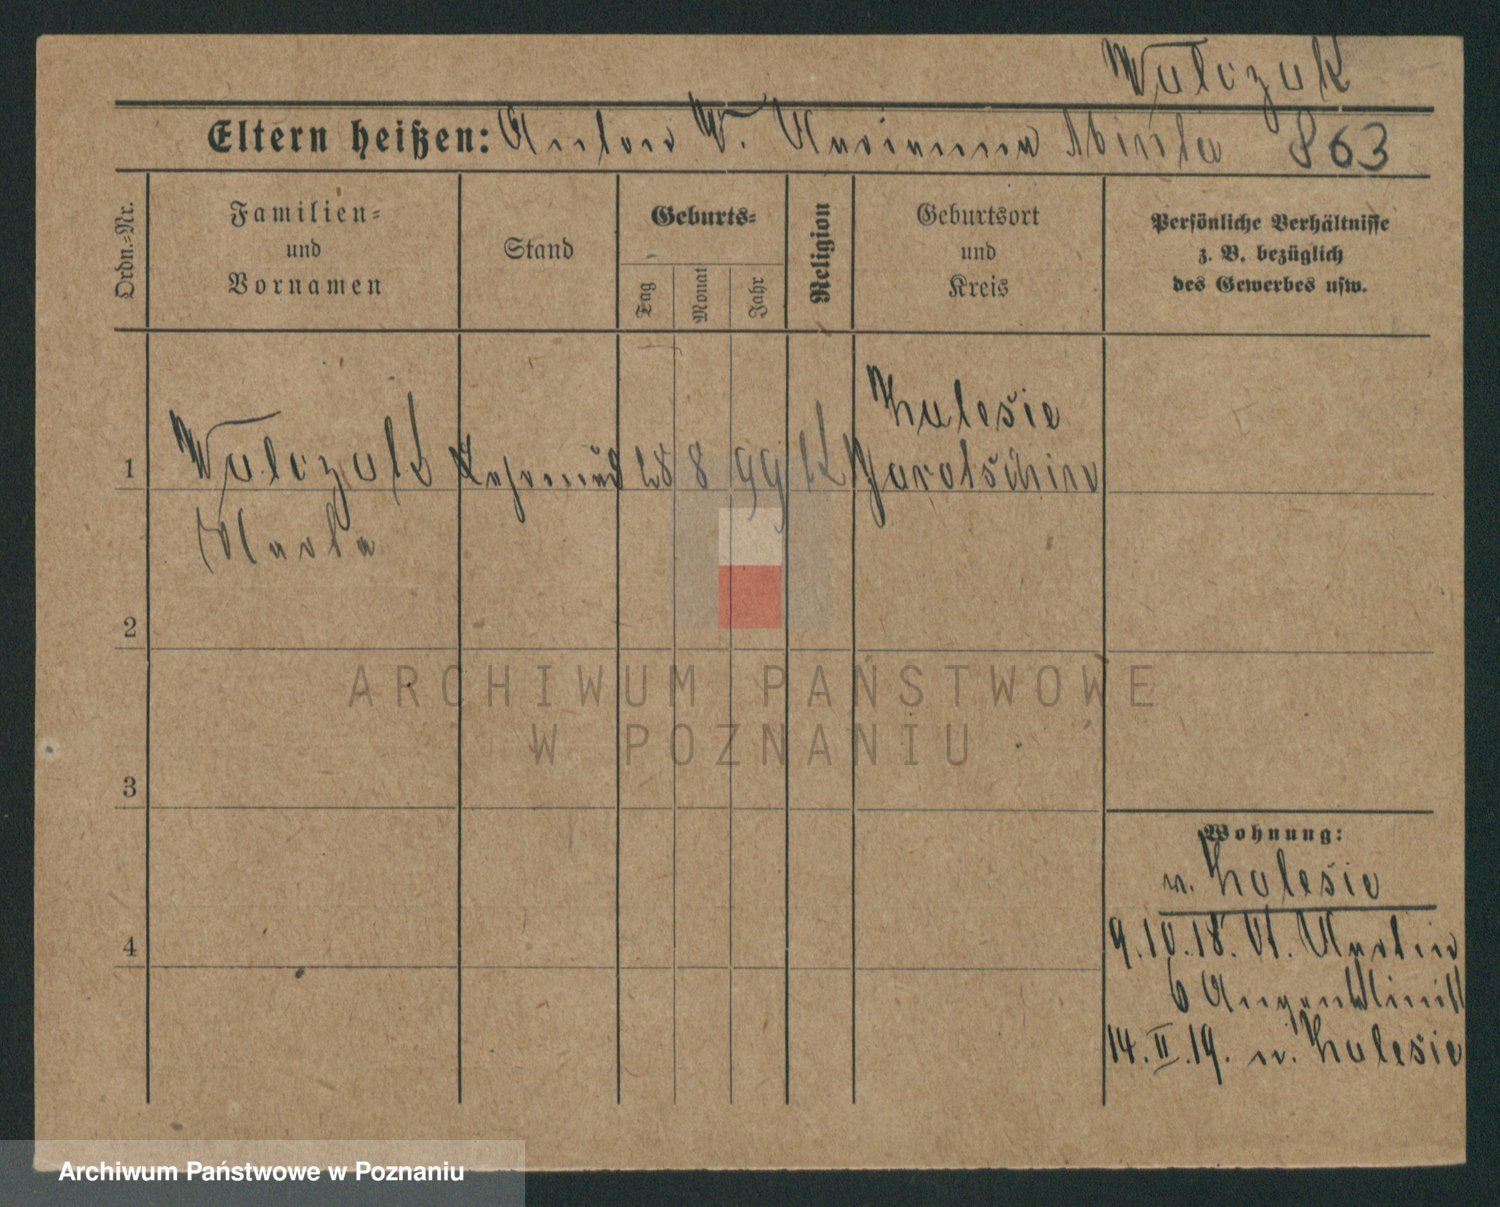 Walczak
Eltern heißen: Anton W. Marianna 863
Ordn.=Nr.
Familien=
und
Vornamen
Stand
Geburts=
Tag
Monat
Jahr
Religion
Geburtsort
und
Kreis
Persönliche Verhältnisse
z. B. bezüglich
des Gewerbes usw.
1
Walczak
Marta
28 8 99 K
Zalesie
Jarotschin
2
ARCHIWUM PAŃSTWOWE
W POZNANIU
3
4
Wohnung:
n. Zalesie
9.10.18. St. Martin
6 Augenklinik
14.II.19. n. Zalesie
Archiwum Państwowe w Poznaniu